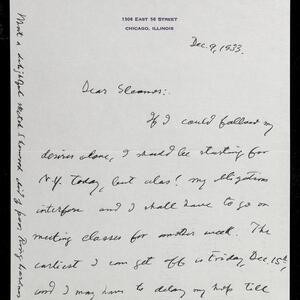 1508 EAST 56 STREET
CHICAGO, ILLINOIS
Dec. 9, 1933.
Dear Eleanor:
If I could follow my
desires alone, I should be starting for
N.Y. today, but alas! my obligations
interfere and I shall have to go on
meeting classes for another week. The
earliest I can get off is Friday, Dec. 15th,
and I may have to delay my trip till
What a delightful sketch Edward did of poor